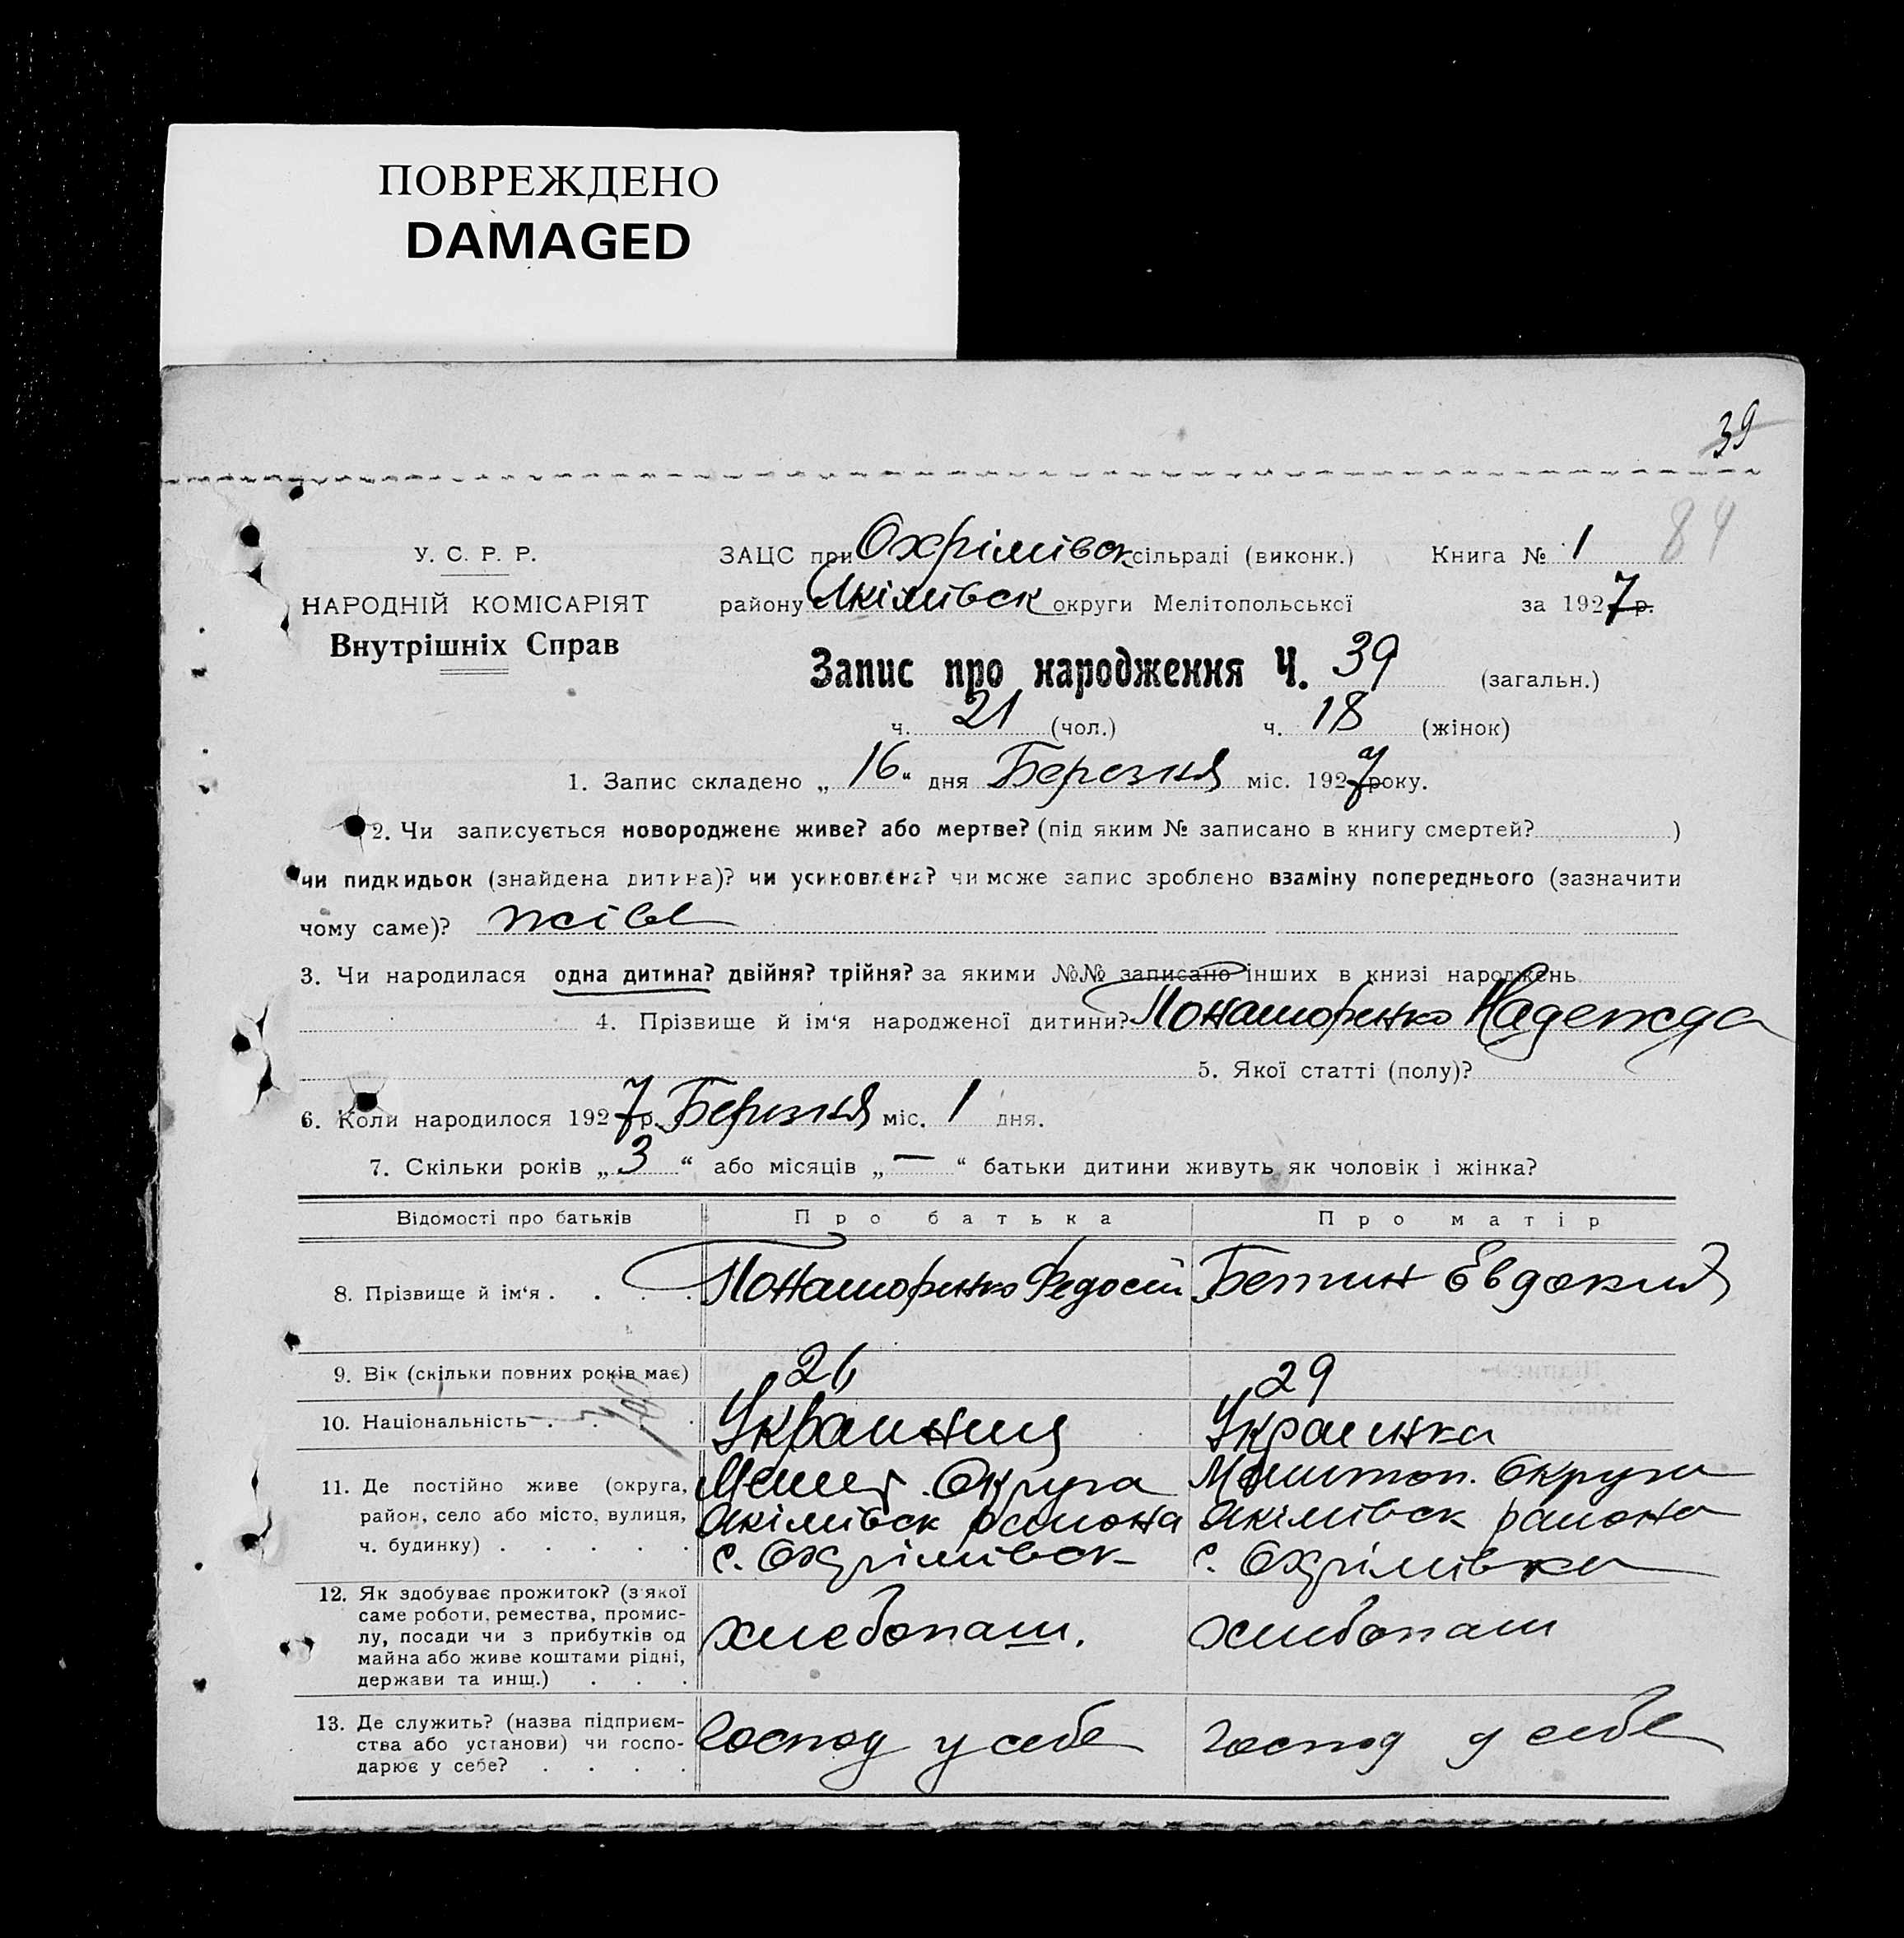 ПОВРЕЖДЕНО
DAMAGED
39
84
У. С. Р. Р.
НАРОДНІЙ КОМІСАРІЯТ
Внутрішніх Справ
ЗАЦС при Охрімівск сільраді (виконк.) Книга № 1
району Якімівск округи Мелітопольської за 1927 р.
Запис про народження Ч. 39 (загальн.)
ч. 21 (чол.) ч. 18 (жінок)
1. Запис складено „ 16 “ дня Березня міс. 1927 року.
2. Чи записується новороджене живе? або мертве? (під яким № записано в книгу смертей? )
чи пидкидьок (знайдена дитина)? чи усиновлена? чи може запис зроблено взаміну попереднього (зазначити
чому саме)? живе
3. Чи народилася одна дитина? двійня? трійня? за якими №№ записано інших в книзі народжень
4. Прізвище й ім‘я народженої дитини? Понаморенко Надежда
5. Якої статті (полу)?
6. Коли народилося 1927 р. Березня міс. 1 дня.
7. Скільки років „ 3 “ або місяців „ — “ батьки дитини живуть як чоловік і жінка?
Відомості про батьків Про батька Про матір
8. Прізвище й ім‘я . . . . Понаморенко Федосій Евдокия
9. Вік (скільки повних років має) 26 29
10. Національність . . . Украинец Украинка
11. Де постійно живе (округа, Мелит. Округа Мелитоп. Округа
район, село або місто, вулиця, Якімівск района Якімівск района
ч. будинку) . . . . . с. Охрімівск с. Охрімівка
12. Як здобуває прожиток? (з якої
саме роботи, ремества, промис-
лу, посади чи з прибутків од хлебопаш. хлебопаш
майна або живе коштами рідні,
держави та инш.) . . .
13. Де служить? (назва підприєм-
ства або установи) чи госпо- Господ у себе господ у себе
дарює у себе? . . . .